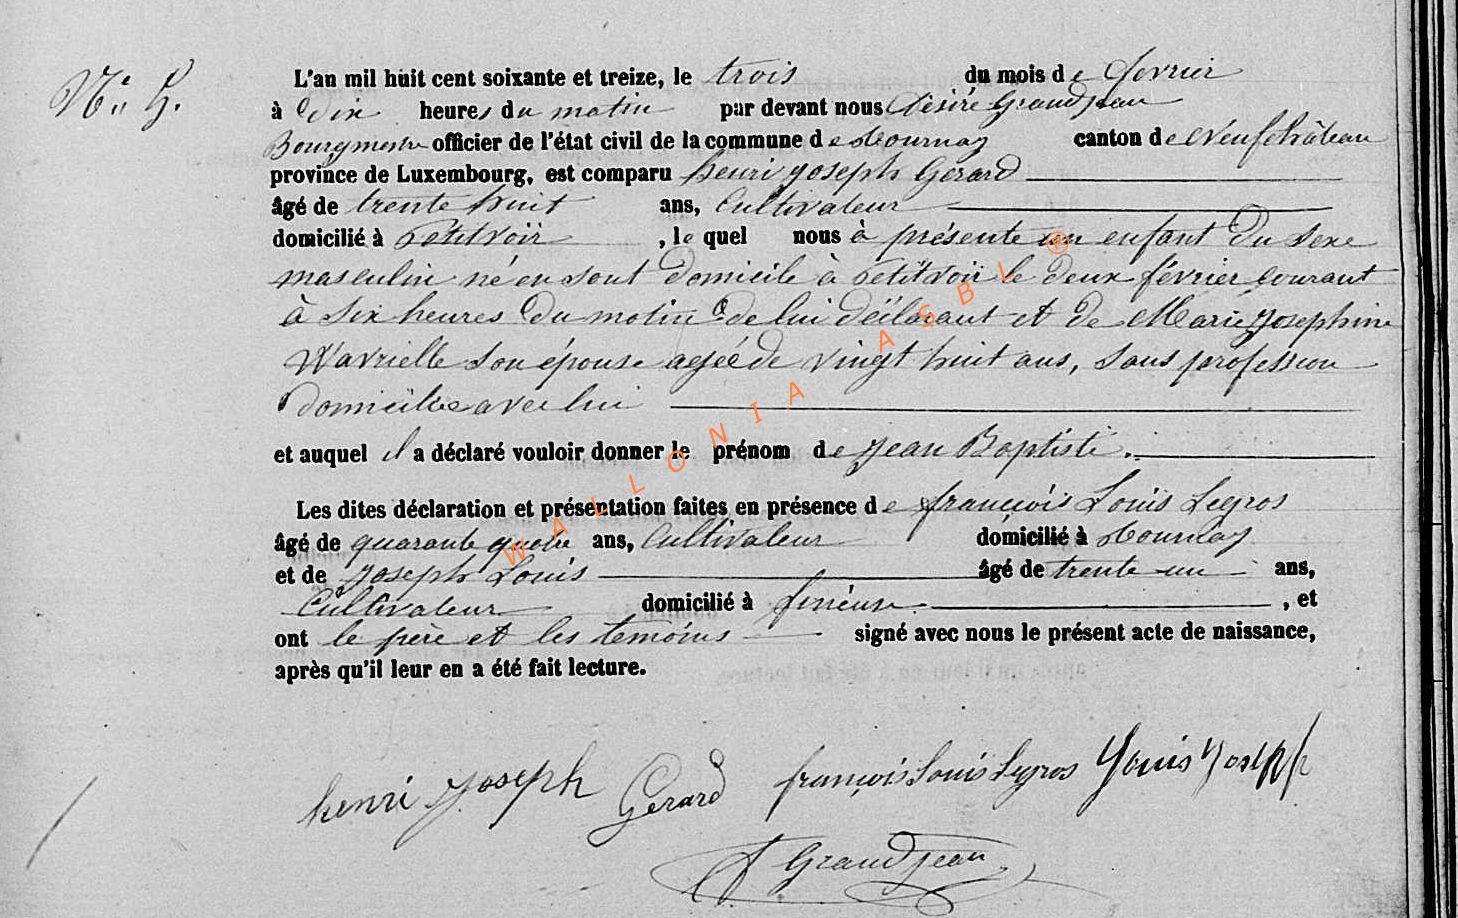 L'an mil huit cent soixante et treize, le trois du mois de février
à dix heures du matin par devant nous Désiré Grandjean
Bourgmestre officier de l'état civil de la commune de Tournay canton de Neufchâteau
province de Luxembourg, est comparu henri joseph Gerard
âgé de trente huit ans, Cultivateur
domicilié à Petitvoir, le quel nous à présenté un enfant du sexe
masculin né en sont domicile à Petitvoir le deux février courant
à six heures du matin de lui déclarant et de Marie Josephine
son épouse agée de vingt huit ans, sans profession
domiciliée avec lui
et auquel il a déclaré vouloir donner le prénom de Jean Baptiste.
Les dites déclaration et présentation faites en présence de françois Louis Legros
âgé de quarante quatre ans, Cultivateur domicilié à Tournay
et de Joseph Louis âgé de trente un ans,
Cultivateur domicilié à , et
ont le père et les temoins signé avec nous le présent acte de naissance,
après qu'il leur en a été fait lecture.
henri Joseph Gerard françois Louis Legros Louis Joseph
Grandjean
WALLONIA ASBL ®